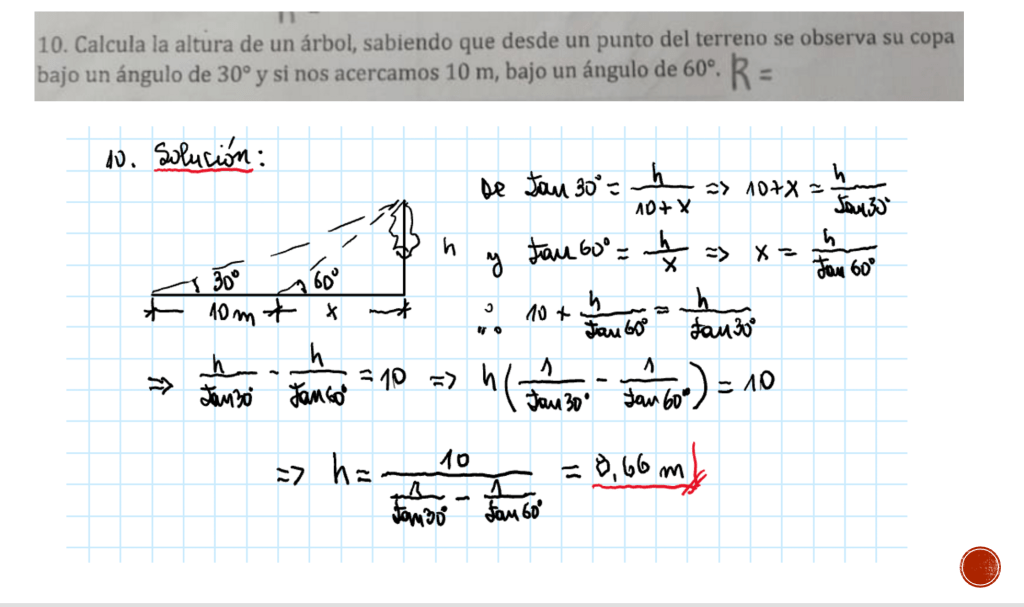 10. Calcula la altura de un árbol, sabiendo que desde un punto del terreno se observa su copa
bajo un ángulo de 30º y si nos acercamos 10 m, bajo un ángulo de 60º. R =
10. Solución:
De tan 30° = h/(10+x) => 10+x = h/tan 30°
h
y tan 60° = h/x => x = h/tan 60°
30° 60°
10 m x
∴ 10 + h/tan 60° = h/tan 30°
=> h/tan 30° - h/tan 60° = 10 => h(1/tan 30° - 1/tan 60°) = 10
=> h = 10/(1/tan 30° - 1/tan 60°) = 8,66 m